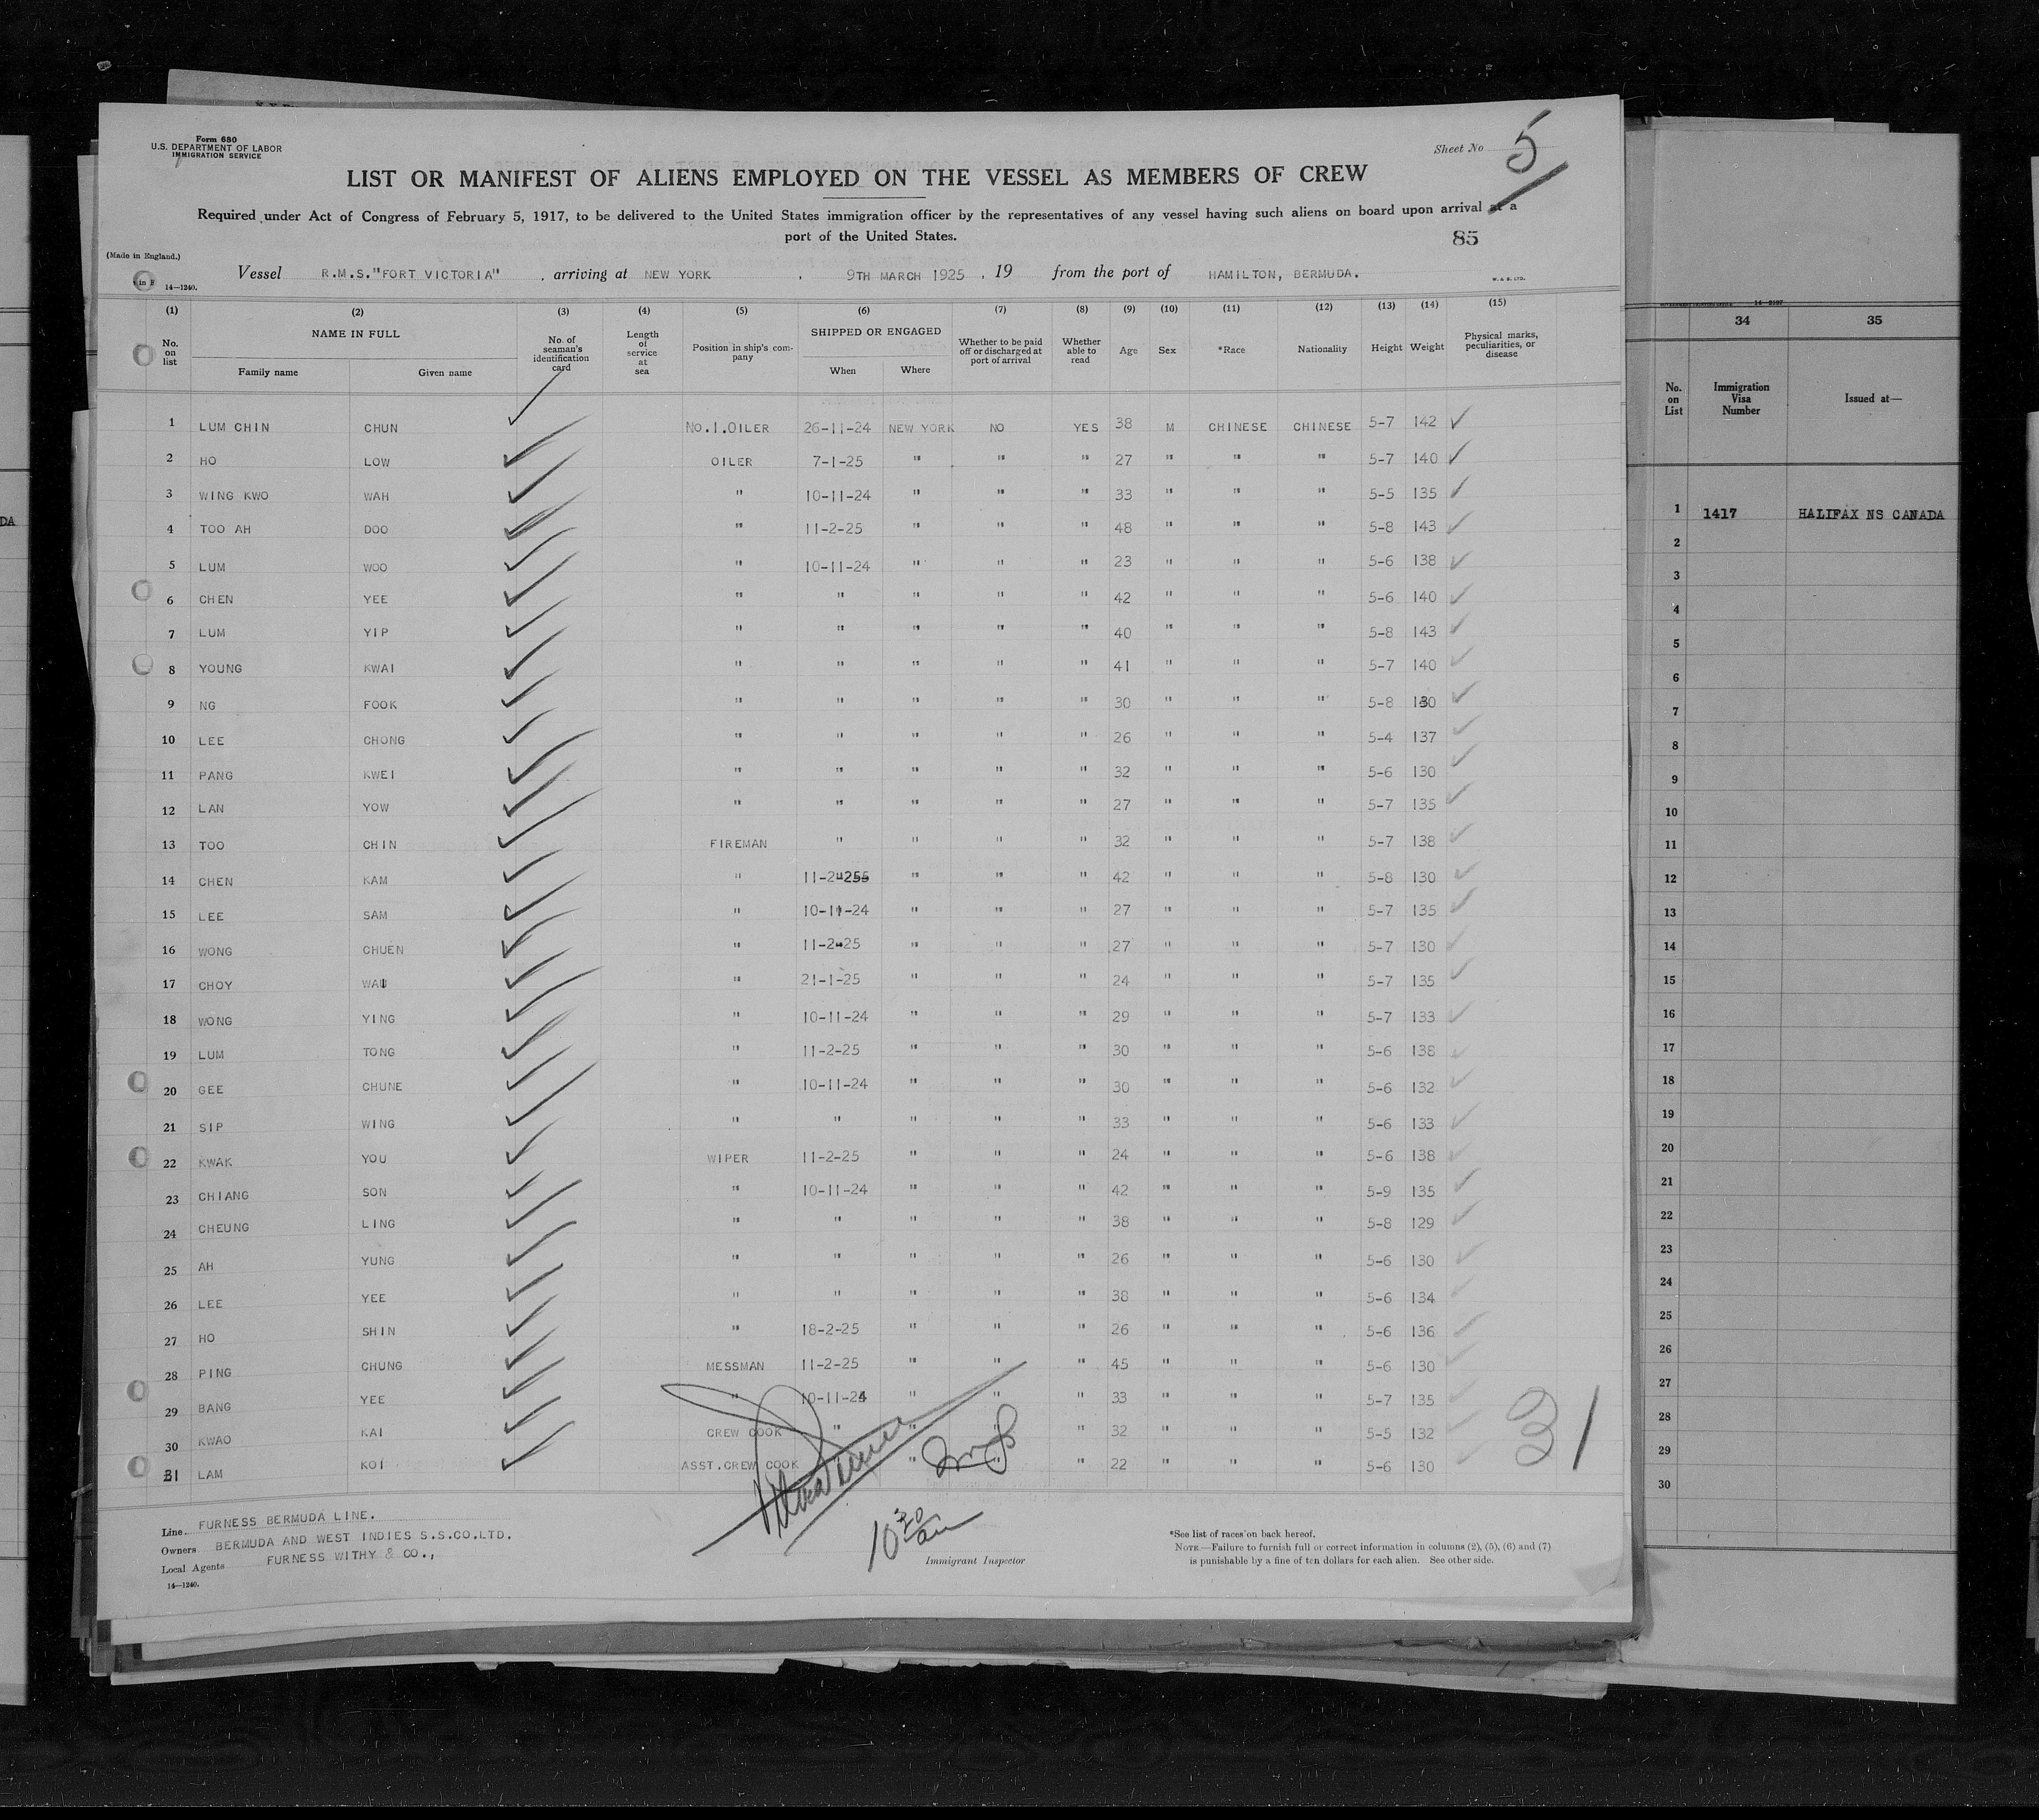 Form 680
U.S. DEPARTMENT OF LABOR
IMMIGRATION SERVICE
Sheet No 5
LIST OR MANIFEST OF ALIENS EMPLOYED ON THE VESSEL AS MEMBERS OF CREW
Required under Act of Congress of February 5, 1917, to be delivered to the United States immigration officer by the representatives of any vessel having such aliens on board upon arrival at a
port of the United States.
85
(Made in England.)
Vessel R.M.S."FORT VICTORIA" , arriving at NEW YORK , 9TH MARCH 1925 , 19 from the port of HAMILTON, BERMUDA.
14—1240.
(1) (2) (3) (4) (5) (6) (7) (8) (9) (10) (11) (12) (13) (14) (15)
No. on list NAME IN FULL Family name Given name No. of seaman's identification card Length of service at sea Position in ship's company SHIPPED OR ENGAGED When Where Whether to be paid off or discharged at port of arrival Whether able to read Age Sex *Race Nationality Height Weight Physical marks, peculiarities, or disease
1 LUM CHIN CHUN NO.1.OILER 26-11-24 NEW YORK NO YES 38 M CHINESE CHINESE 5-7 142
2 HO LOW OILER 7-1-25 " " " 27 " " " 5-7 140
3 WING KWO WAH " 10-11-24 " " " 33 " " " 5-5 135
4 TOO AH DOO " 11-2-25 " " " 48 " " " 5-8 143
5 LUM WOO " 10-11-24 " " " 23 " " " 5-6 138
6 CHEN YEE " " " " " 42 " " " 5-6 140
7 LUM YIP " " " " " 40 " " " 5-8 143
8 YOUNG KWAI " " " " " 41 " " " 5-7 140
9 NG FOOK " " " " " 30 " " " 5-8 130
10 LEE CHONG " " " " " 26 " " " 5-4 137
11 PANG KWEI " " " " " 32 " " " 5-6 130
12 LAN YOW " " " " " 27 " " " 5-7 135
13 TOO CHIN FIREMAN " " " " 32 " " " 5-7 138
14 CHEN KAM " 11-2-25 " " " 42 " " " 5-8 130
15 LEE SAM " 10-11-24 " " " 27 " " " 5-7 135
16 WONG CHUEN " 11-2-25 " " " 27 " " " 5-7 130
17 CHOY " 21-1-25 " " " 24 " " " 5-7 135
18 WONG YING " 10-11-24 " " " 29 " " " 5-7 133
19 LUM TONG " 11-2-25 " " " 30 " " " 5-6 138
20 GEE CHUNE " 10-11-24 " " " 30 " " " 5-6 132
21 SIP WING " " " " " 33 " " " 5-6 133
22 KWAK YOU WIPER 11-2-25 " " " 24 " " " 5-6 138
23 CHIANG SON " 10-11-24 " " " 42 " " " 5-9 135
24 CHEUNG LING " " " " " 38 " " " 5-8 129
25 AH YUNG " " " " " 26 " " " 5-6 130
26 LEE YEE " " " " " 38 " " " 5-6 134
27 HO SHIN " 18-2-25 " " " 26 " " " 5-6 136
28 PING CHUNG MESSMAN 11-2-25 " " " 45 " " " 5-6 130
29 BANG YEE " 10-11-24 " " " 33 " " " 5-7 135
30 KWAO KAI CREW COOK " " " " 32 " " " 5-5 132
31 LAM KOI ASST.CREW COOK " " " 22 " " " 5-6 130
31
10 30 am
Line FURNESS BERMUDA LINE.
Owners BERMUDA AND WEST INDIES S.S.CO.LTD.
Local Agents FURNESS WITHY & CO.,
14—1240.
Immigrant Inspector
*See list of races on back hereof.
NOTE.—Failure to furnish full or correct information in columns (2), (5), (6) and (7)
is punishable by a fine of ten dollars for each alien. See other side.
34 35
No. on List Immigration Visa Number Issued at—
1 1417 HALIFAX NS CANADA
2
3
4
5
6
7
8
9
10
11
12
13
14
15
16
17
18
19
20
21
22
23
24
25
26
27
28
29
30
DA